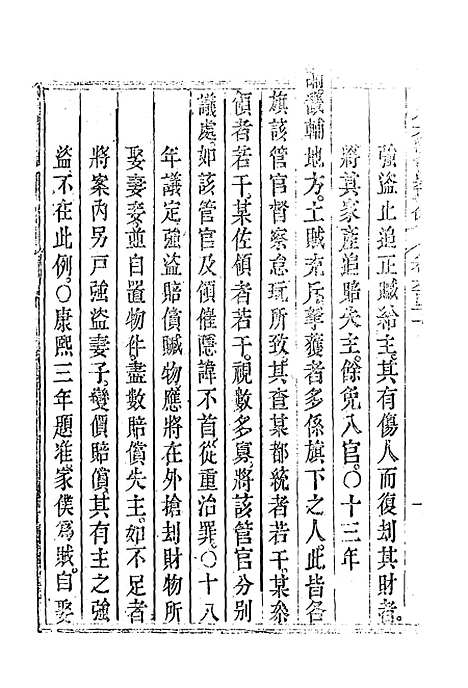 強盜止追正贓給主其有傷人而復刼其財者
將其家產追賠失主餘免入官〇十三年
諭畿輔地方土賊充斥拏獲者多係旗下之人此皆各
旗該管官督察怠玩所致其查某都統者若干某叅
領者若干某佐領者若干視數多寡將該管官分別
議處如該管官及領催隱諱不首從重治罪〇十八
年議定強盜賠償贓物應將在外搶刼財物所
娶妻妾並自置物件盡數賠償失主如不足者
將案內另戶強盜妻子變價賠償其有主之強
盜不在此例〇康熙三年題准家僕爲賊自娶